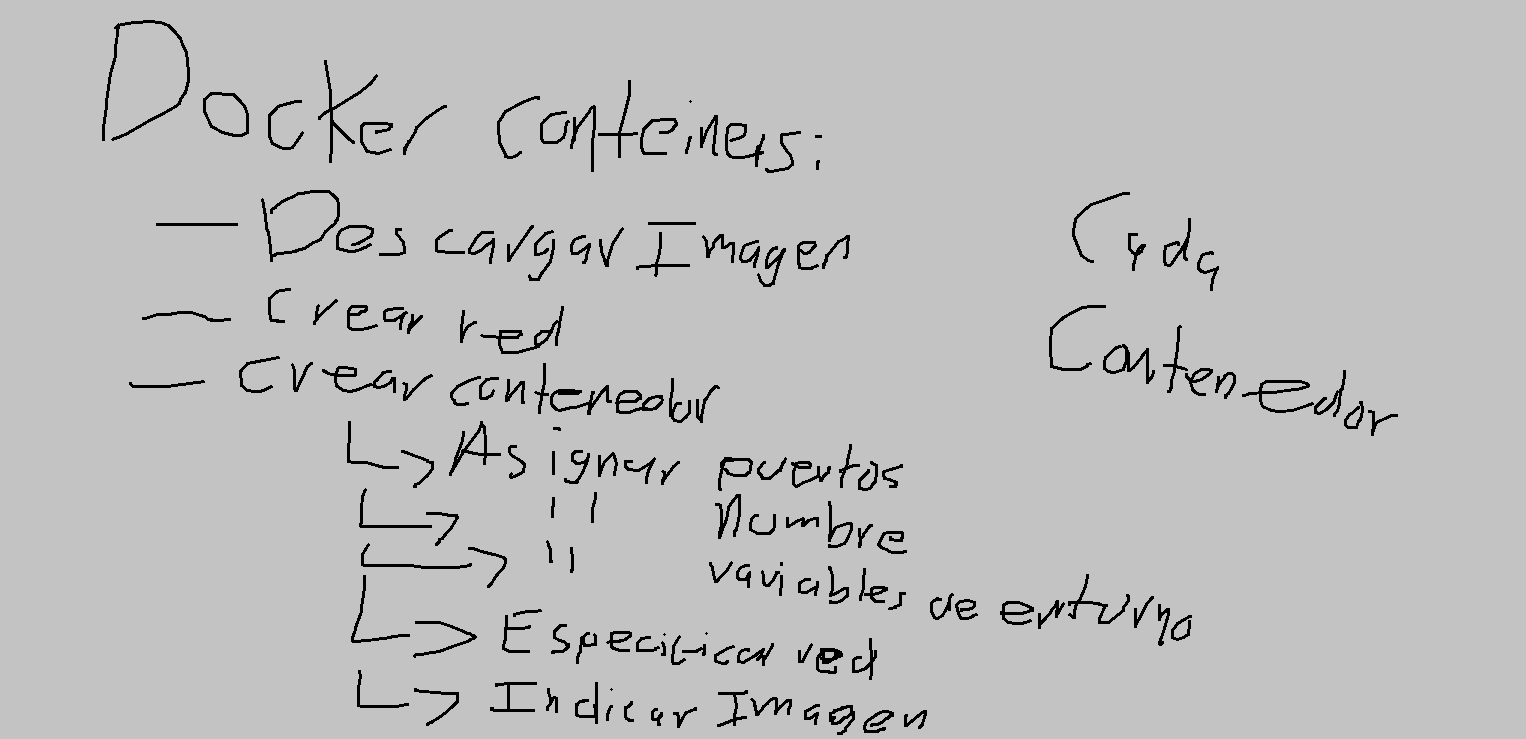 Docker conteiners:
— Descargar Imagen
— Crear red
— Crear contenedor
↳ Asignar puertos
↳ " Nombre
↳ " variables de entorno
↳ Especificar red
↳ Indicar Imagen
Cada
Contenedor